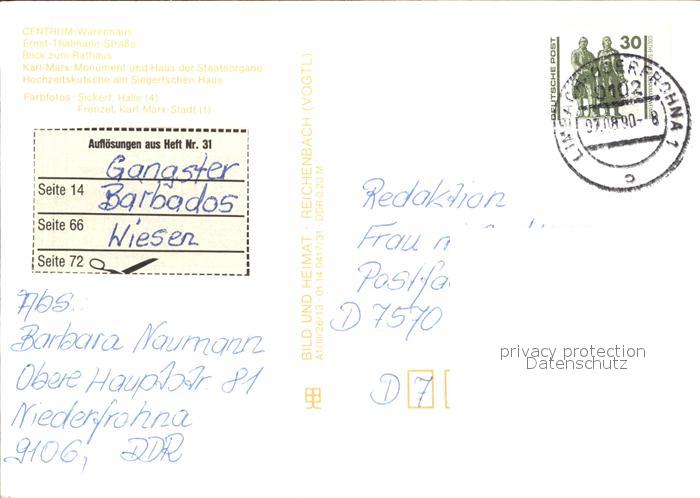 CENTRUM-Warenhaus
Ernst-Thälmann-Straße
Blick zum Rathaus
Karl-Marx-Monument und Haus der Staatsorgane
Hochzeitskutsche am Siegertschen Haus
Farbfotos: Sickert, Halle (4)
Frenzel, Karl-Marx-Stadt (1)
Auflösungen aus Heft Nr. 31
Gangster
Seite 14
Barbados
Seite 66
Wiesen
Seite 72
Abs.:
Barbara Naumann
Obere Hauptstr. 81
Niederfrohna
9106, DDR
BILD UND HEIMAT · REICHENBACH (VOGTL)
A1/III/26/13 · 01 14 0417/31 · DDR 0,20 M
DEUTSCHE POST
30
LIMBACH-OBERFROHNA 1
9102
07.08.90-8
c
Redaktion
Frau
Postfa
D 7570
D 7
privacy protection
Datenschutz